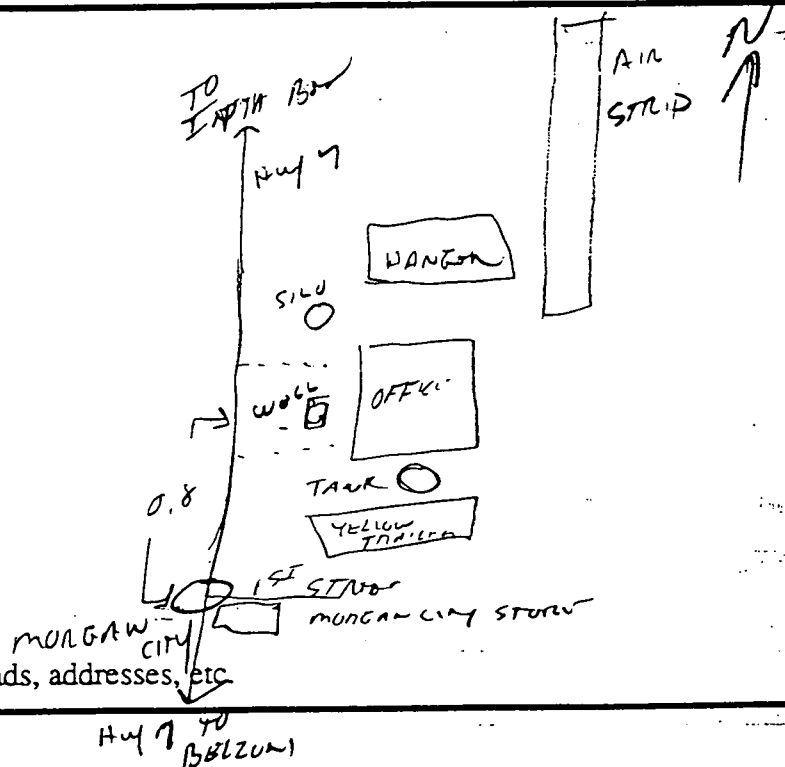 N
AIR
STRIP
TO
Hwy 7
HANGER
SILO
WELL
OFFICE
0.8
TANK
YELLOW
TRAILER
1 ST STREET
MORGAN CITY STORE
MORGAN
CITY
ads, addresses, etc.
Hwy 7 TO
BELZONI